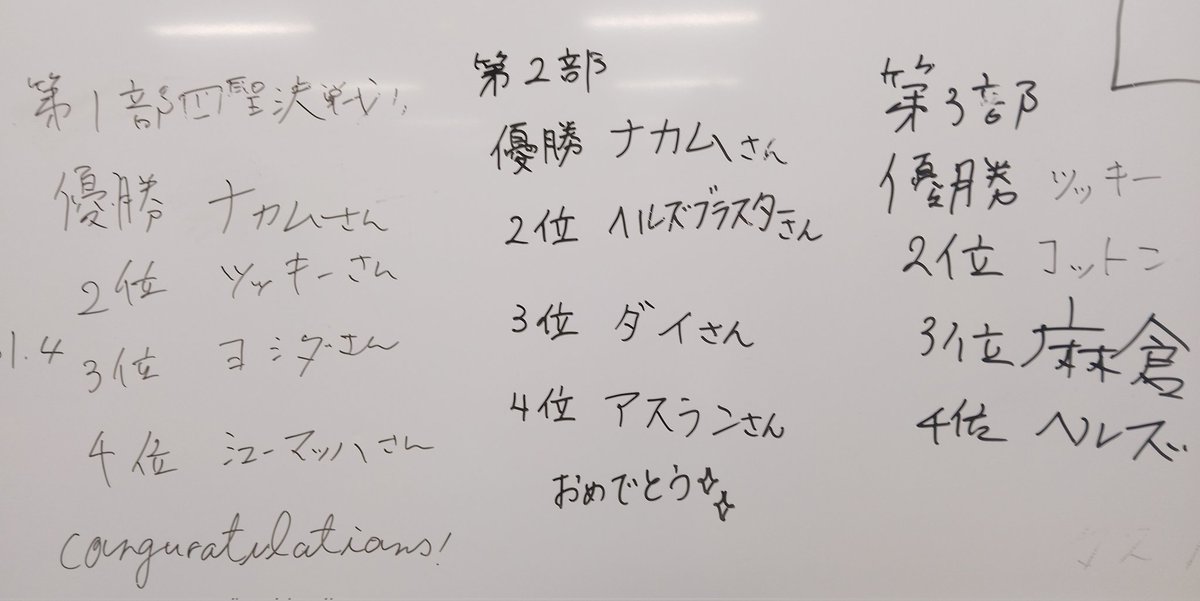 第1部四聖決戦!
優勝 ナカムーさん
2位 ツッキーさん
3位 ヨシダさん
4位 シューマッハさん
Conguratulations!
1.4
第2部
優勝 ナカムーさん
2位 ヘルズブラスターさん
3位 ダイさん
4位 アスランさん
おめでとう
第3部
優勝 ツッキー
2位 コットン
3位 麻倉
4位 ヘルズ